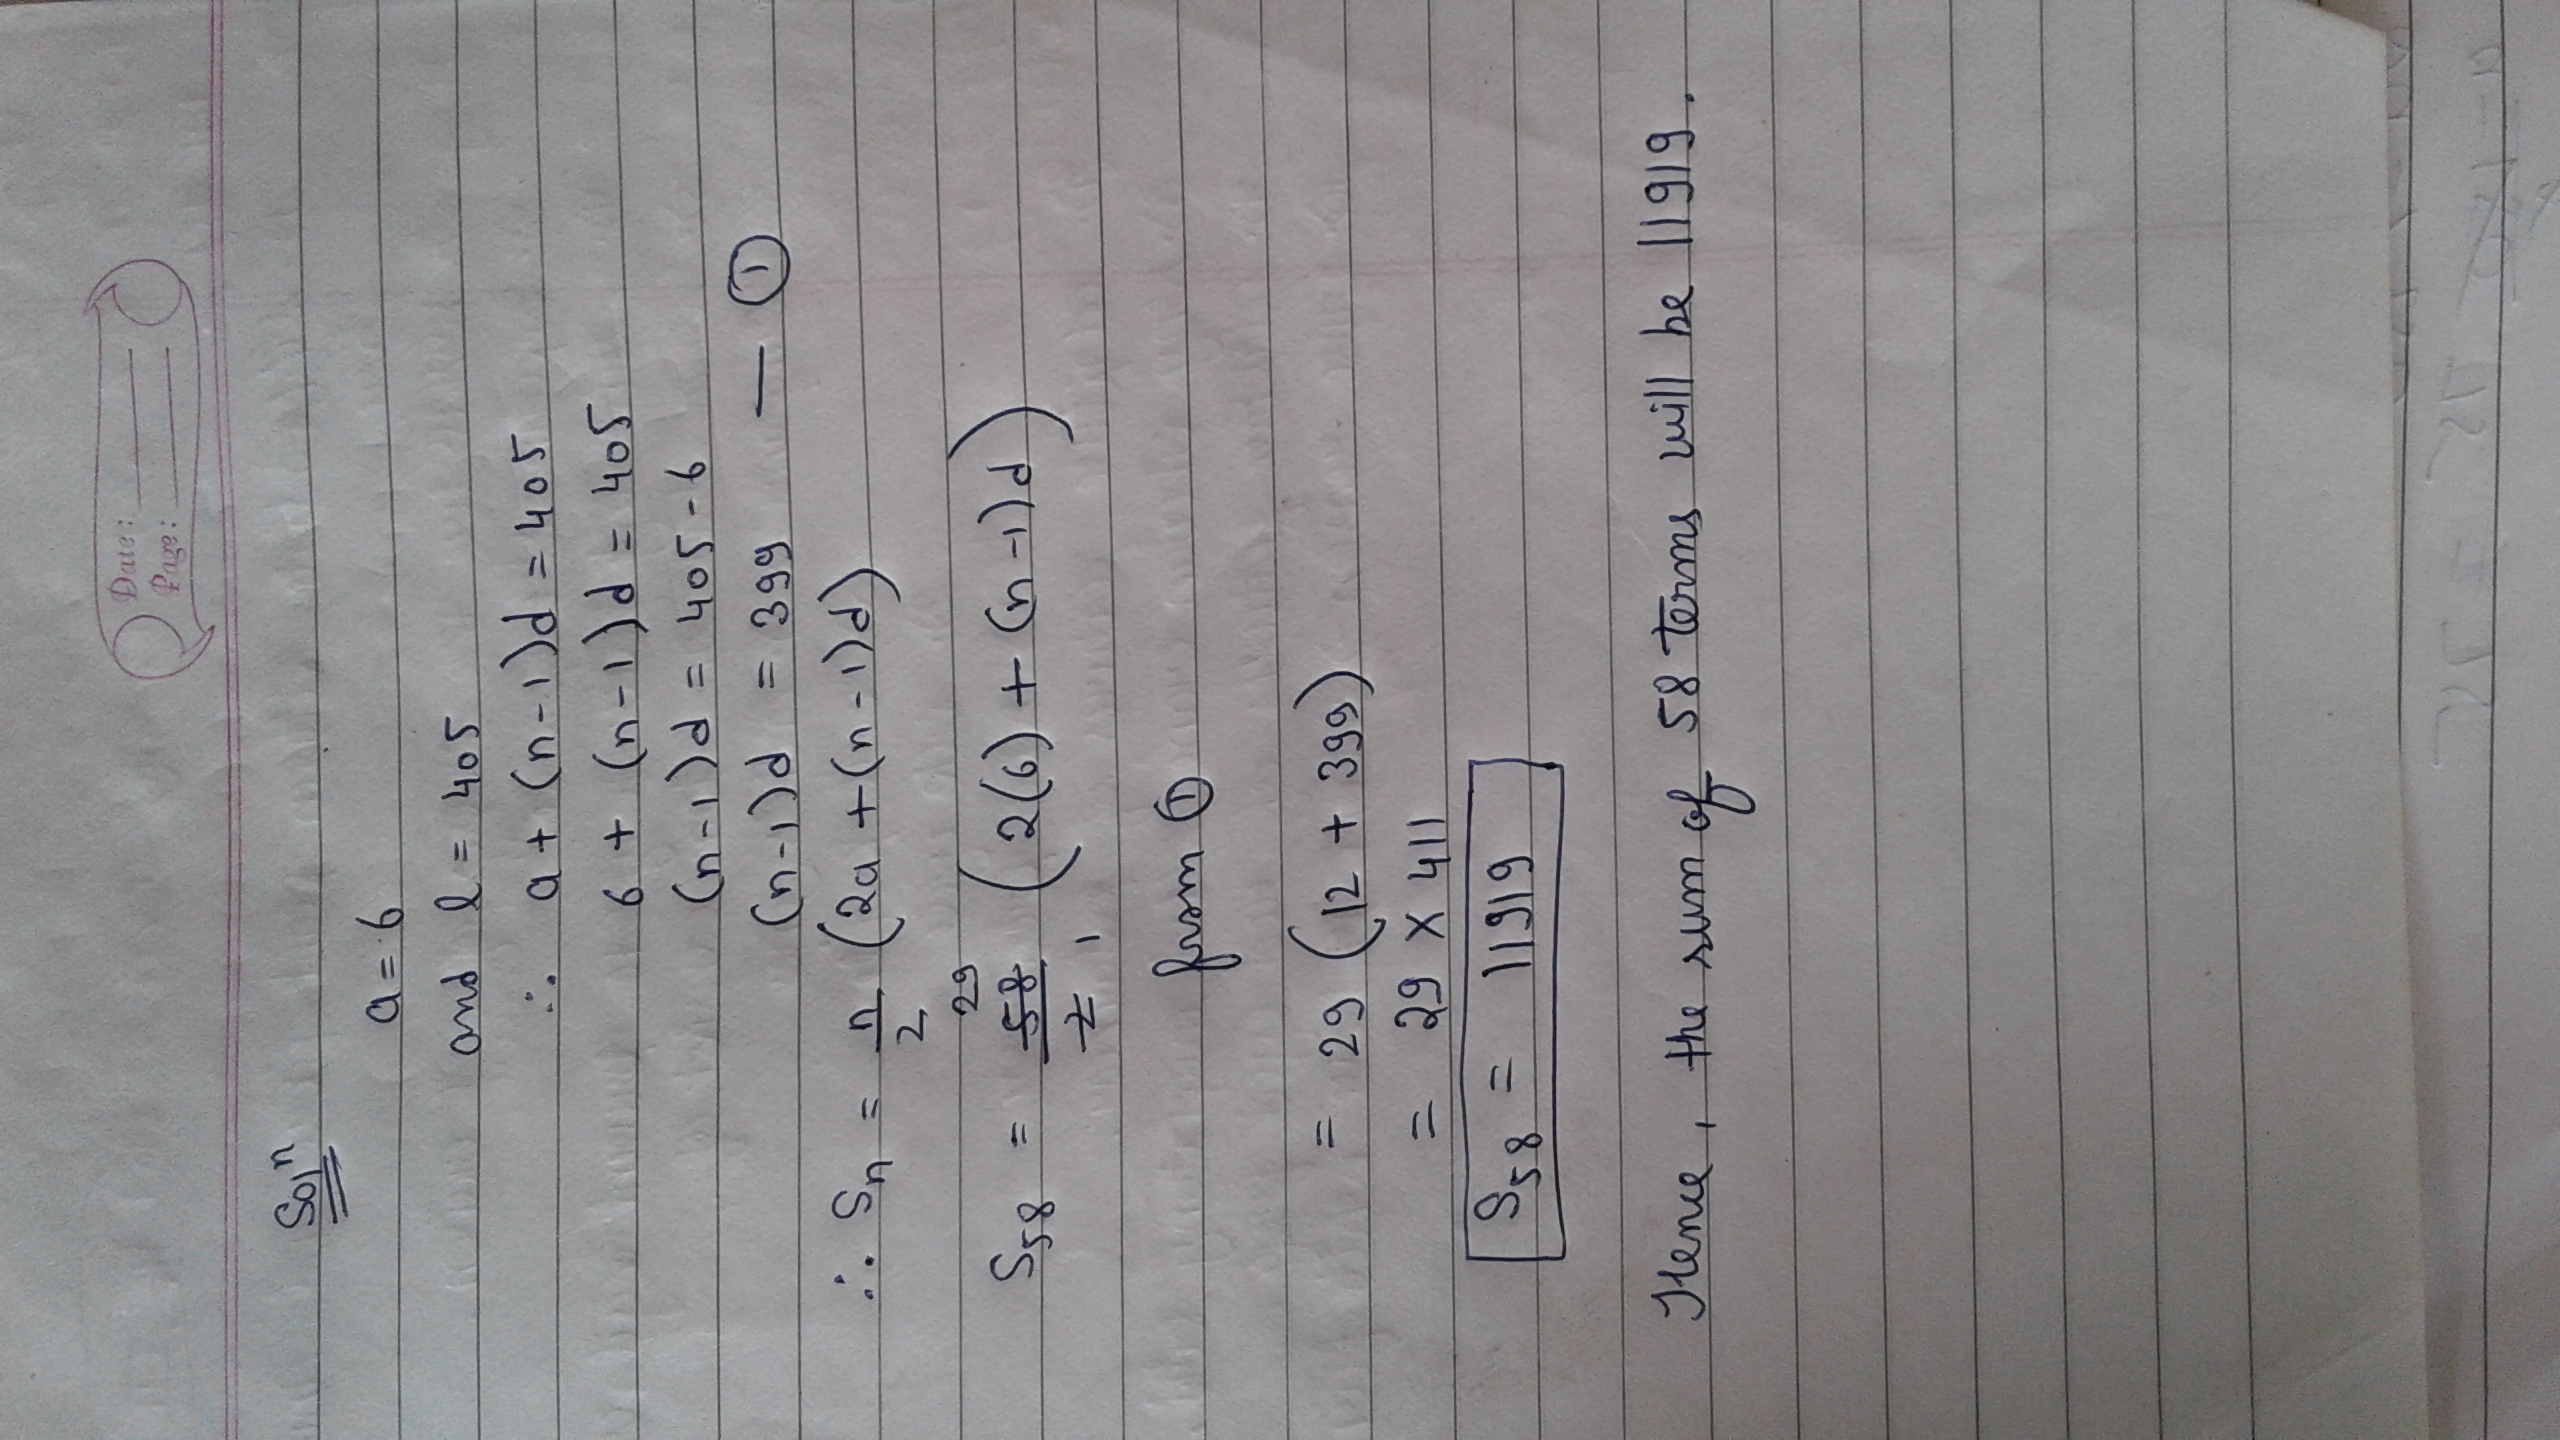 Date:
Page:
Solⁿ
a = 6
and l = 405
∴ a + (n-1)d = 405
6 + (n-1)d = 405
(n-1)d = 405 - 6
(n-1)d = 399 — ①
∴ Sn = n/2 (2a + (n-1)d)
S58 = 58/2 (2(6) + (n-1)d)
29 1
from ①
= 29 (12 + 399)
= 29 × 411
S58 = 11919
Hence, the sum of 58 terms will be 11919.